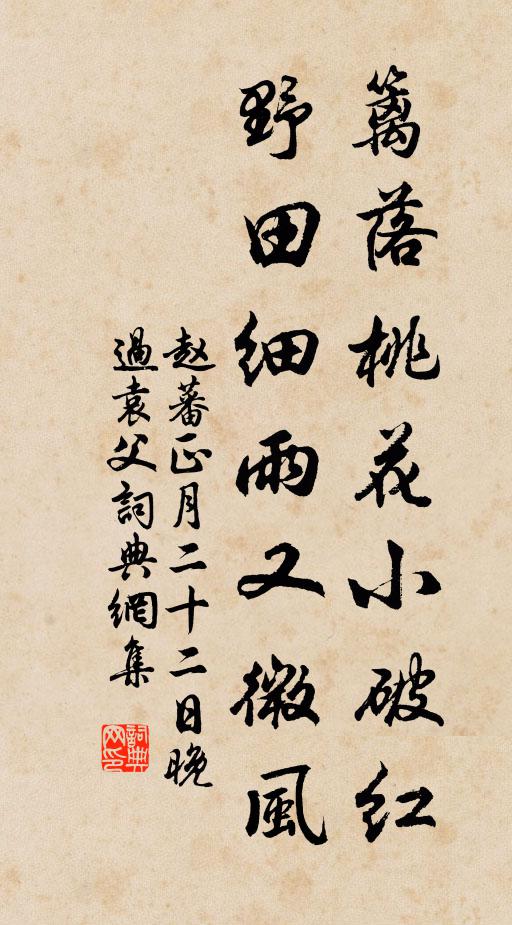 籬落桃花小破紅
野田細雨又微風
赵蕃正月二十二日晚
過袁父詞典網集
詞典
网印